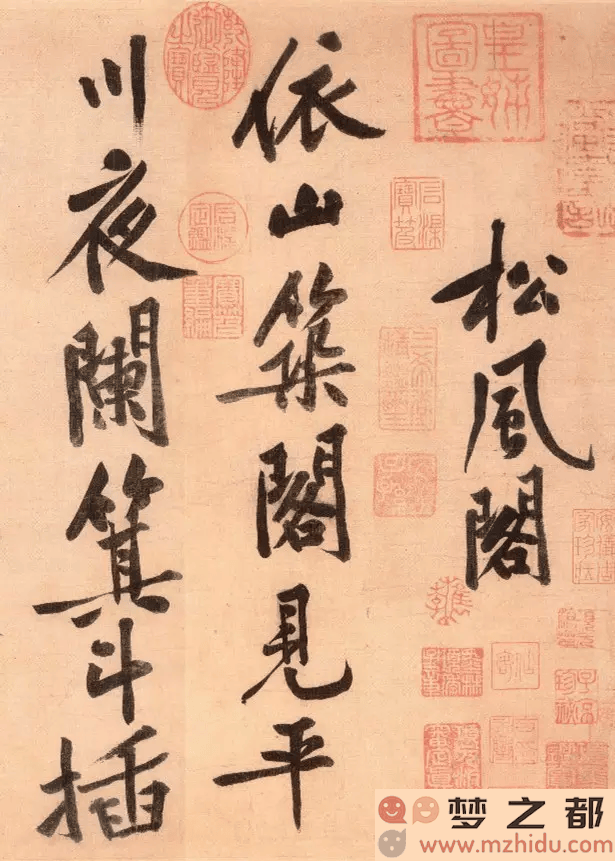 松風閣
依山築閣見平
川夜闌箕斗插
皇姊圖書
梦之都
www.mzhidu.com